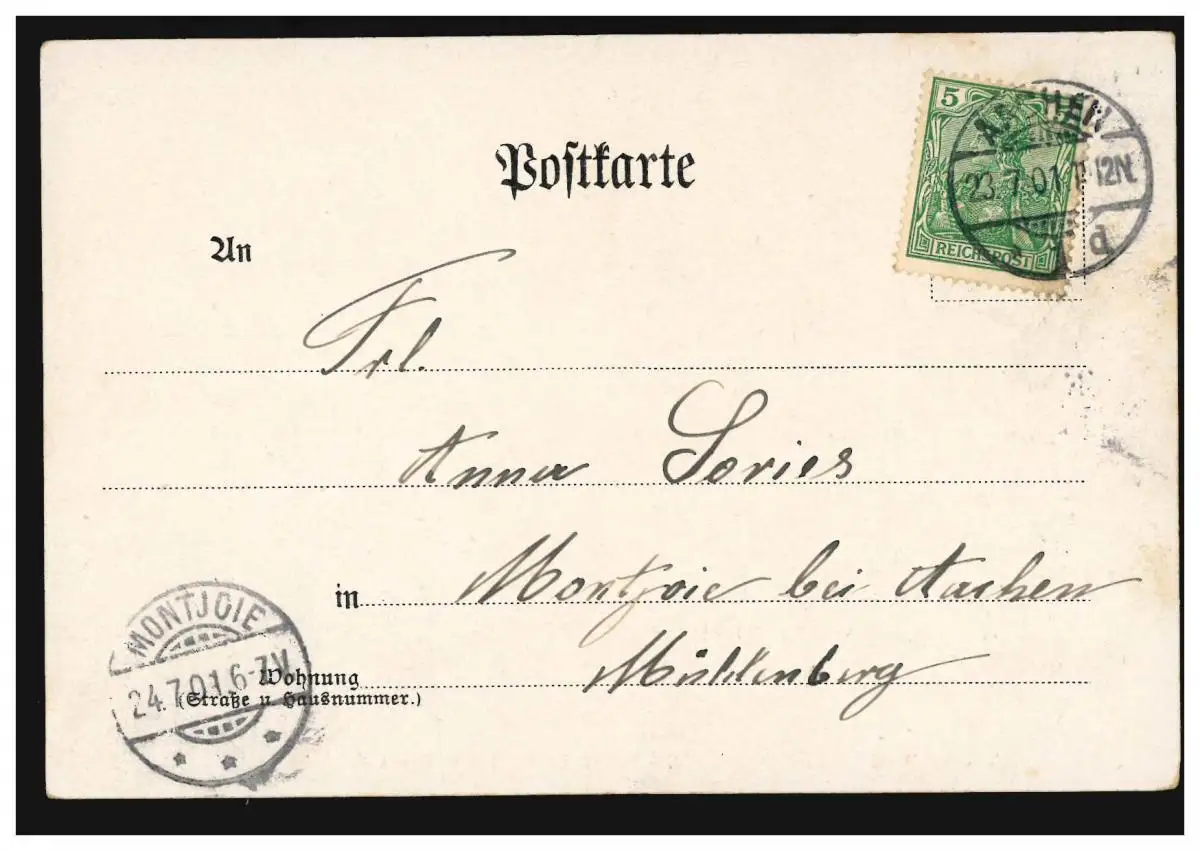 Postkarte
5
REICHSPOST
AACHEN
23.7.01 11-12N.
d
An
Frl.
Anna Sories
in Montjoie bei Aachen
MONTJOIE
24.7.01.6-7V.
Wohnung Mühlenberg
(Straße u. Hausnummer.)